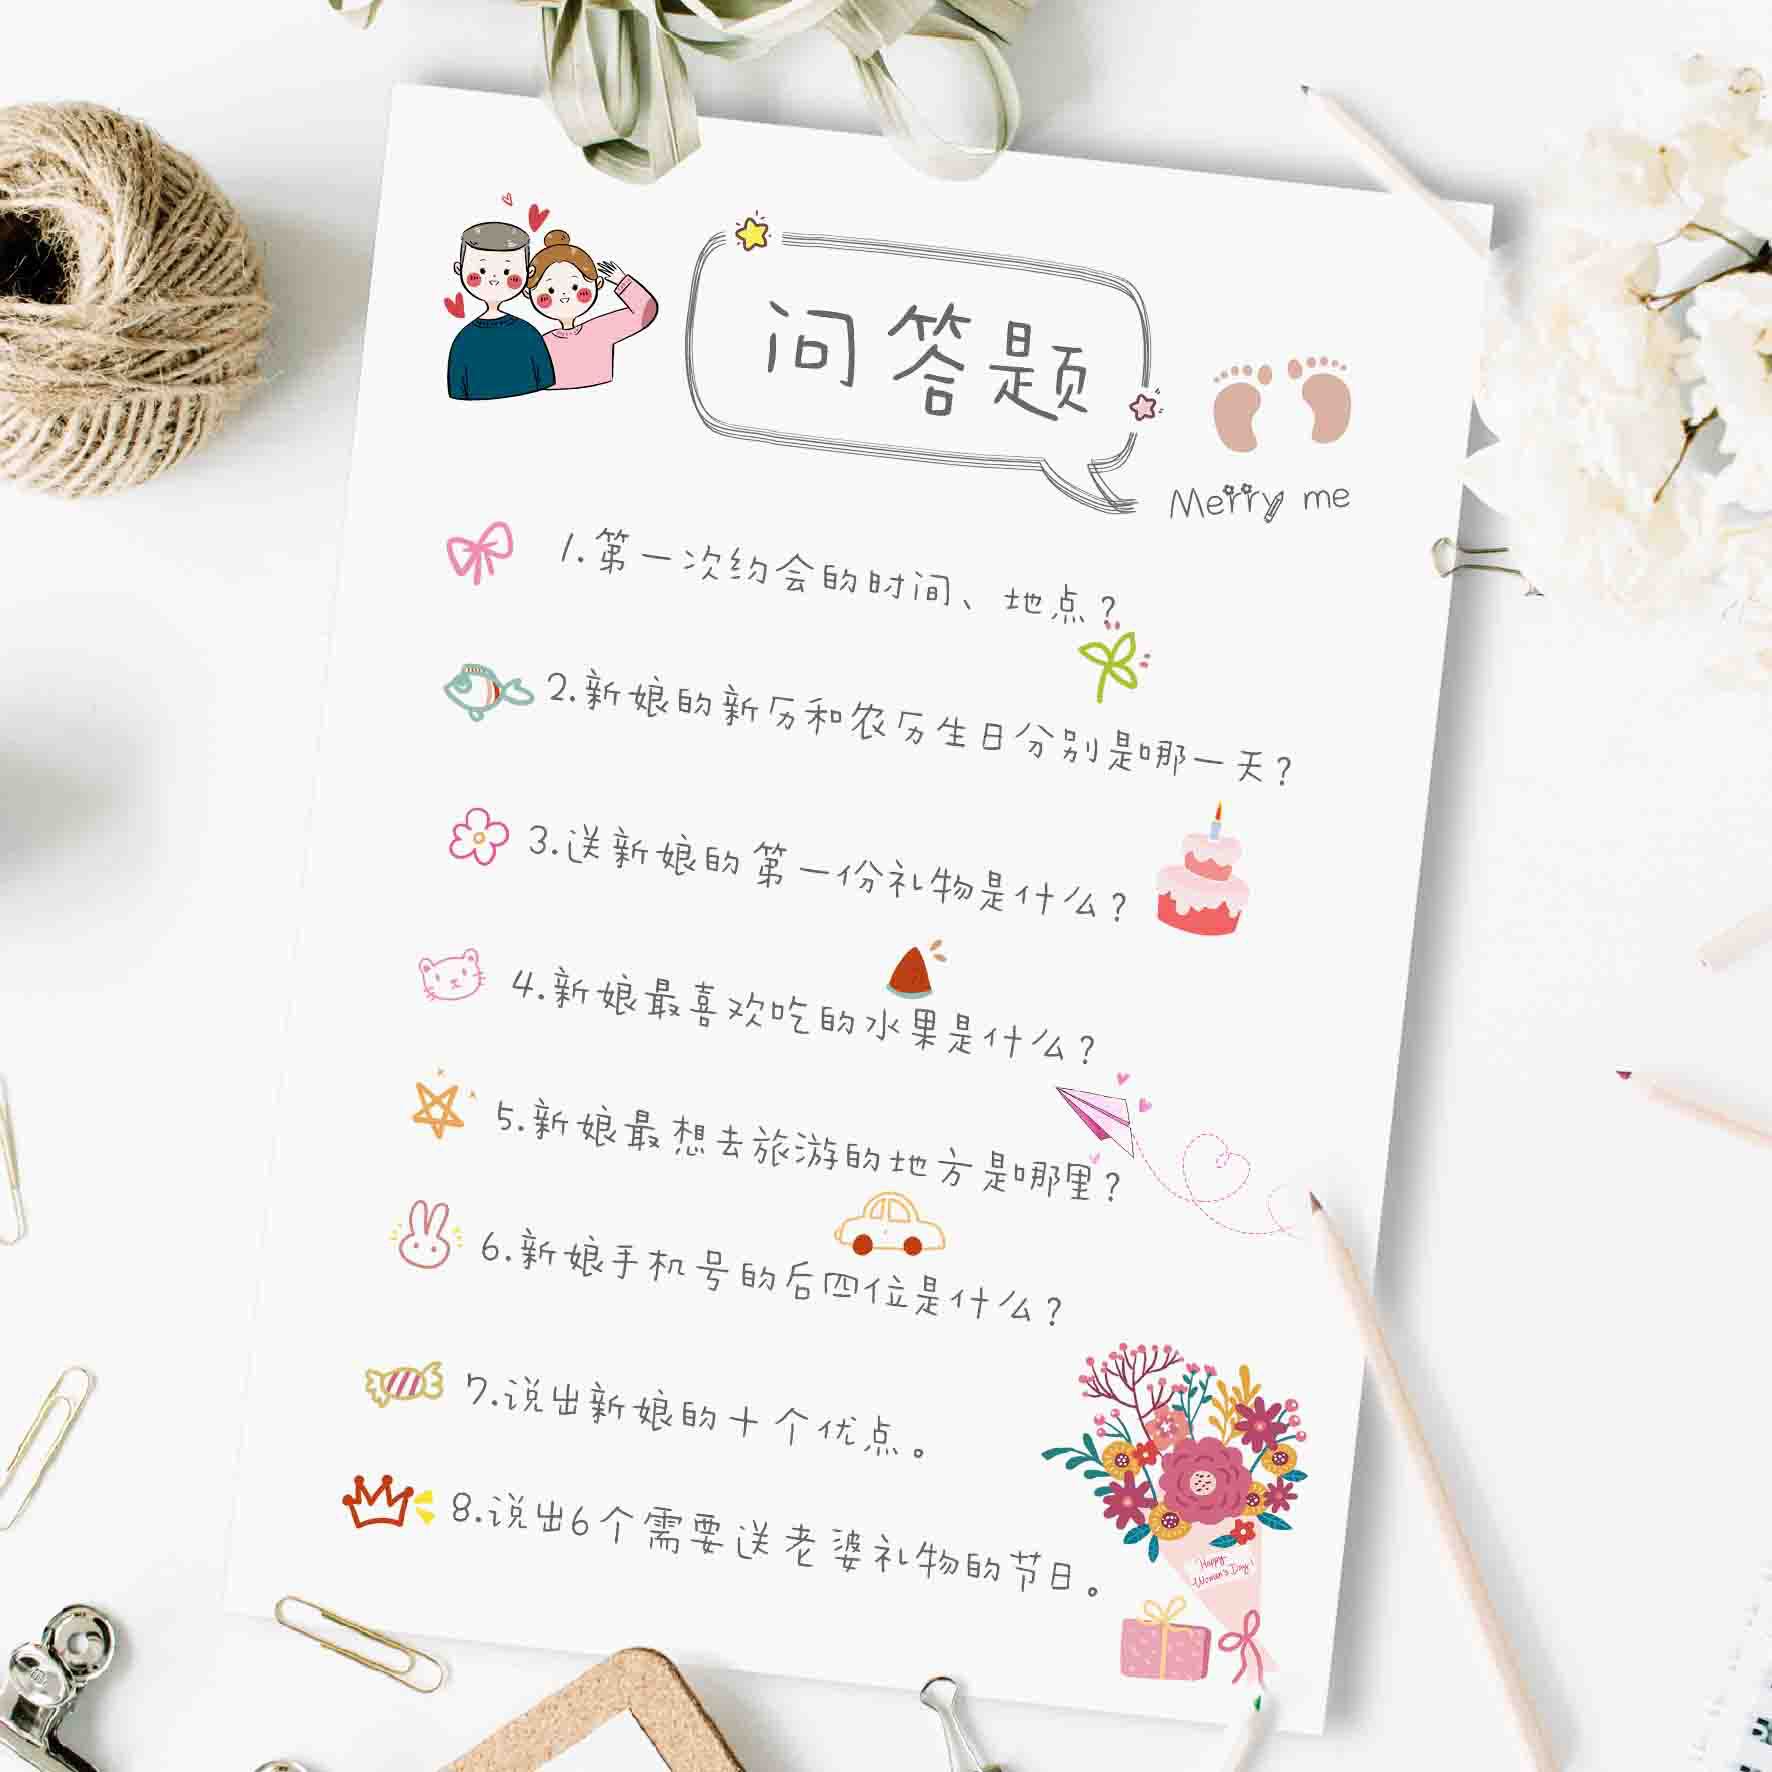 问答题
Merry me
1.第一次约会的时间、地点?
2.新娘的新历和农历生日分别是哪一天?
3.送新娘的第一份礼物是什么?
4.新娘最喜欢吃的水果是什么?
5.新娘最想去旅游的地方是哪里?
6.新娘手机号的后四位是什么?
7.说出新娘的十个优点。
8.说出6个需要送老婆礼物的节日。
Happy
Women's Day!